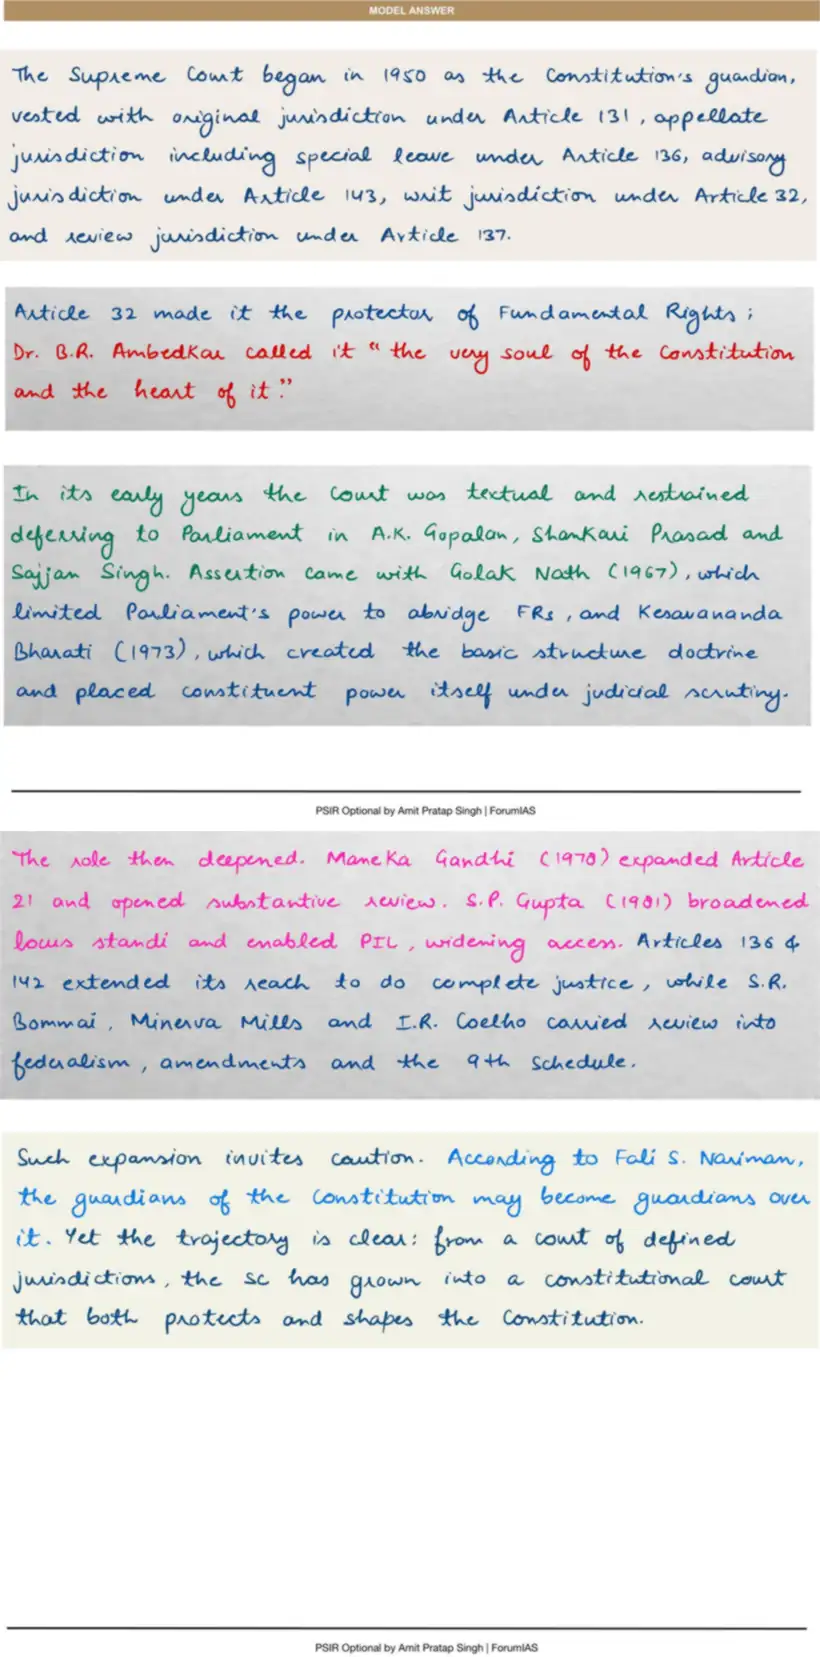 MODEL ANSWER
The Supreme Court began in 1950 as the Constitution's guardian,
vested with original jurisdiction under Article 131, appellate
jurisdiction including special leave under Article 136, advisory
jurisdiction under Article 143, writ jurisdiction under Article 32,
and review jurisdiction under Article 137.
Article 32 made it the protector of Fundamental Rights;
Dr. B.R. Ambedkar called it "the very soul of the Constitution
and the heart of it."
In its early years the Court was textual and restrained
deferring to Parliament in A.K. Gopalan, Shankari Prasad and
Sajjan Singh. Assertion came with Golak Nath (1967), which
limited Parliament's power to abridge FRs, and Kesavananda
Bharati (1973), which created the basic structure doctrine
and placed constituent power itself under judicial scrutiny.
PSIR Optional by Amit Pratap Singh | ForumIAS
The role then deepened. Maneka Gandhi (1978) expanded Article
21 and opened substantive review. S.P. Gupta (1981) broadened
locus standi and enabled PIL, widening access. Articles 136 &
142 extended its reach to do complete justice, while S.R.
Bommai, Minerva Mills and I.R. Coelho carried review into
federalism, amendments and the 9th Schedule.
Such expansion invites caution. According to Fali S. Nariman,
the guardians of the Constitution may become guardians over
it. Yet the trajectory is clear: from a court of defined
jurisdictions, the SC has grown into a constitutional court
that both protects and shapes the Constitution.
PSIR Optional by Amit Pratap Singh | ForumIAS